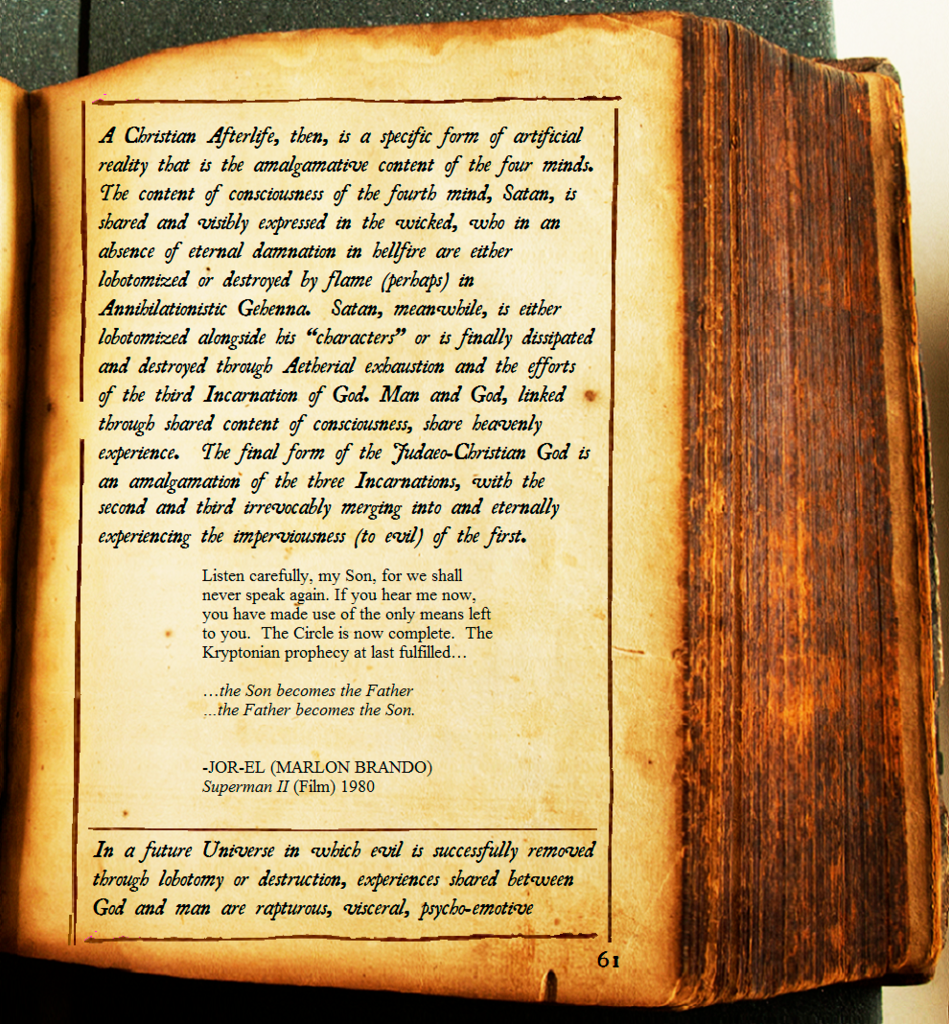 A Christian Afterlife, then, is a specific form of artificial
reality that is the amalgamative content of the four minds.
The content of consciousness of the fourth mind, Satan, is
shared and visibly expressed in the wicked, who in an
absence of eternal damnation in hellfire are either
lobotomized or destroyed by flame (perhaps) in
Annihilationistic Gehenna.  Satan, meanwhile, is either
lobotomized alongside his “characters” or is finally dissipated
and destroyed through Aetherial exhaustion and the efforts
of the third Incarnation of God. Man and God, linked
through shared content of consciousness, share heavenly
experience.  The final form of the Judaeo-Christian God is
an amalgamation of the three Incarnations, with the
second and third irrevocably merging into and eternally
experiencing the imperviousness (to evil) of the first.
Listen carefully, my Son, for we shall
never speak again. If you hear me now,
you have made use of the only means left
to you.  The Circle is now complete.  The
Kryptonian prophecy at last fulfilled…
…the Son becomes the Father
...the Father becomes the Son.
-JOR-EL (MARLON BRANDO)
Superman II (Film) 1980
In a future Universe in which evil is successfully removed
through lobotomy or destruction, experiences shared between
God and man are rapturous, visceral, psycho-emotive
61